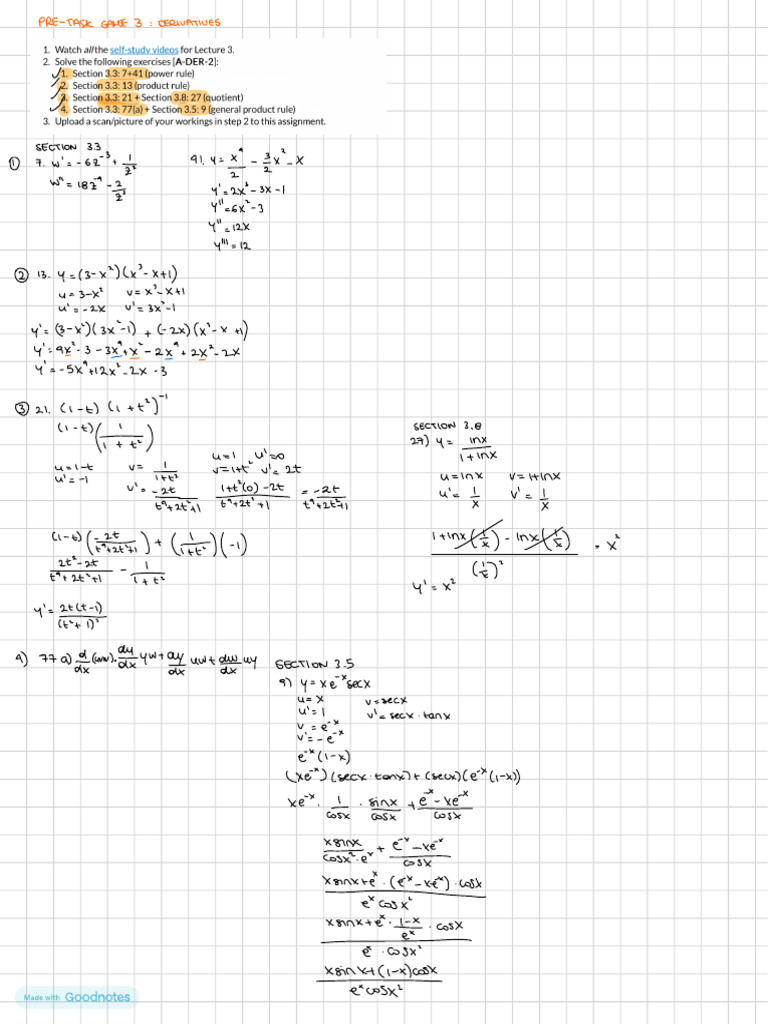 PRE-TASK GAME 3 : DERIVATIVES
1. Watch all the self-study videos for Lecture 3.
2. Solve the following exercises [A-DER-2]:
1. Section 3.3: 7+41 (power rule)
2. Section 3.3: 13 (product rule)
3. Section 3.3: 21 + Section 3.8: 27 (quotient)
4. Section 3.3: 77(a) + Section 3.5: 9 (general product rule)
3. Upload a scan/picture of your workings in step 2 to this assignment.
SECTION 3.3
① 7. w' = -6z^-3 + 1/z²
w'' = 18z^-4 - 2/z³
41. y = x^4/2 - 3/2 x² - x
y' = 2x³ - 3x - 1
y'' = 6x² - 3
y'' = 12x
y''' = 12
② 13. y = (3-x²)(x³-x+1)
u = 3-x² v = x³-x+1
u' = -2x v' = 3x²-1
y' = (3-x²)(3x²-1) + (-2x)(x³-x+1)
y' = 9x² - 3 - 3x^4 + x² - 2x^4 + 2x² - 2x
y' = -5x^4 + 12x² - 2x - 3
③ 21. (1-t)(1+t²)^-1
(1-t)(1/(1+t²))
u = 1-t v = 1/(1+t²)
u' = -1 v' = -2t/(t^4+2t²+1)
u = 1 u' = 0
v = 1+t² v' = 2t
(1+t²(0) - 2t)/(t^4+2t²+1) = -2t/(t^4+2t²+1)
(1-t)(-2t/(t^4+2t²+1)) + (1/(1+t²))(-1)
(2t²-2t)/(t^4+2t²+1) - 1/(1+t²)
y' = 2t(t-1)/(t²+1)²
SECTION 3.8
27) y = lnx/(1+lnx)
u = lnx v = 1+lnx
u' = 1/x v' = 1/x
(1+lnx(1/x) - lnx(1/x))/(1/x)² = x²
y' = x²
4) 77 a) d/dx (uvw) · dy/dx yw + dy/dx uw + dw/dx uy
SECTION 3.5
9) y = xe^-x secx
u = x v = secx
u' = 1 v' = secx · tanx
v = e^-x
v' = -e^-x
e^-x (1-x)
(xe^-x)(secx · tanx) + (secx)(e^-x (1-x))
xe^-x · 1/cosx · sinx/cosx + (e^-x - xe^-x)/cosx
xsinx/(cosx² · e^x) + (e^-x - xe^-x)/cosx
(xsinx + e^x · (e^-x - xe^-x) · cosx)/(e^x cosx²)
(xsinx + e^x · (1-x)/e^x · cosx)/(e^x · cosx²)
(xsinx + (1-x)cosx)/(e^x cosx²)
Made with Goodnotes